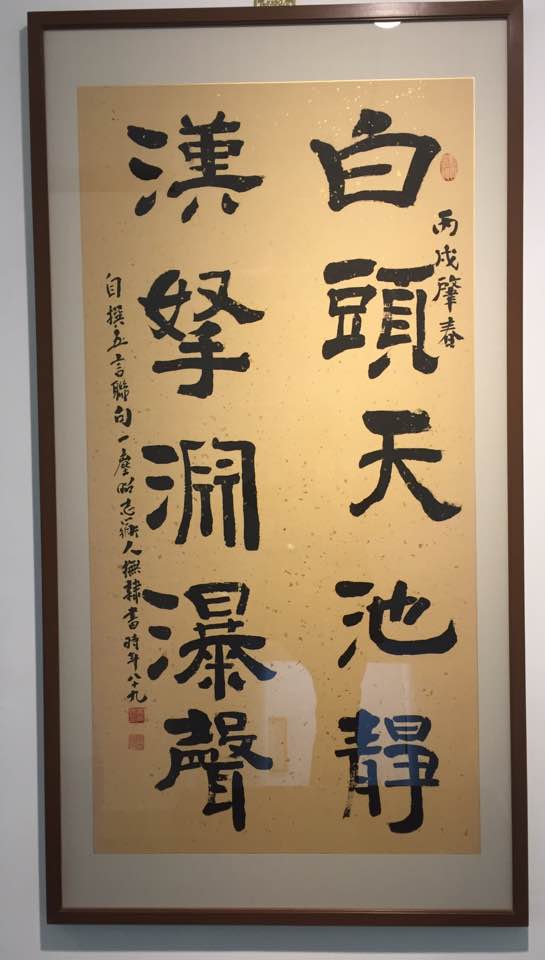 丙戌肇春
白頭天池靜
漢拏淵瀑聲
自撰五言聯句一 志 人 書時年八十九